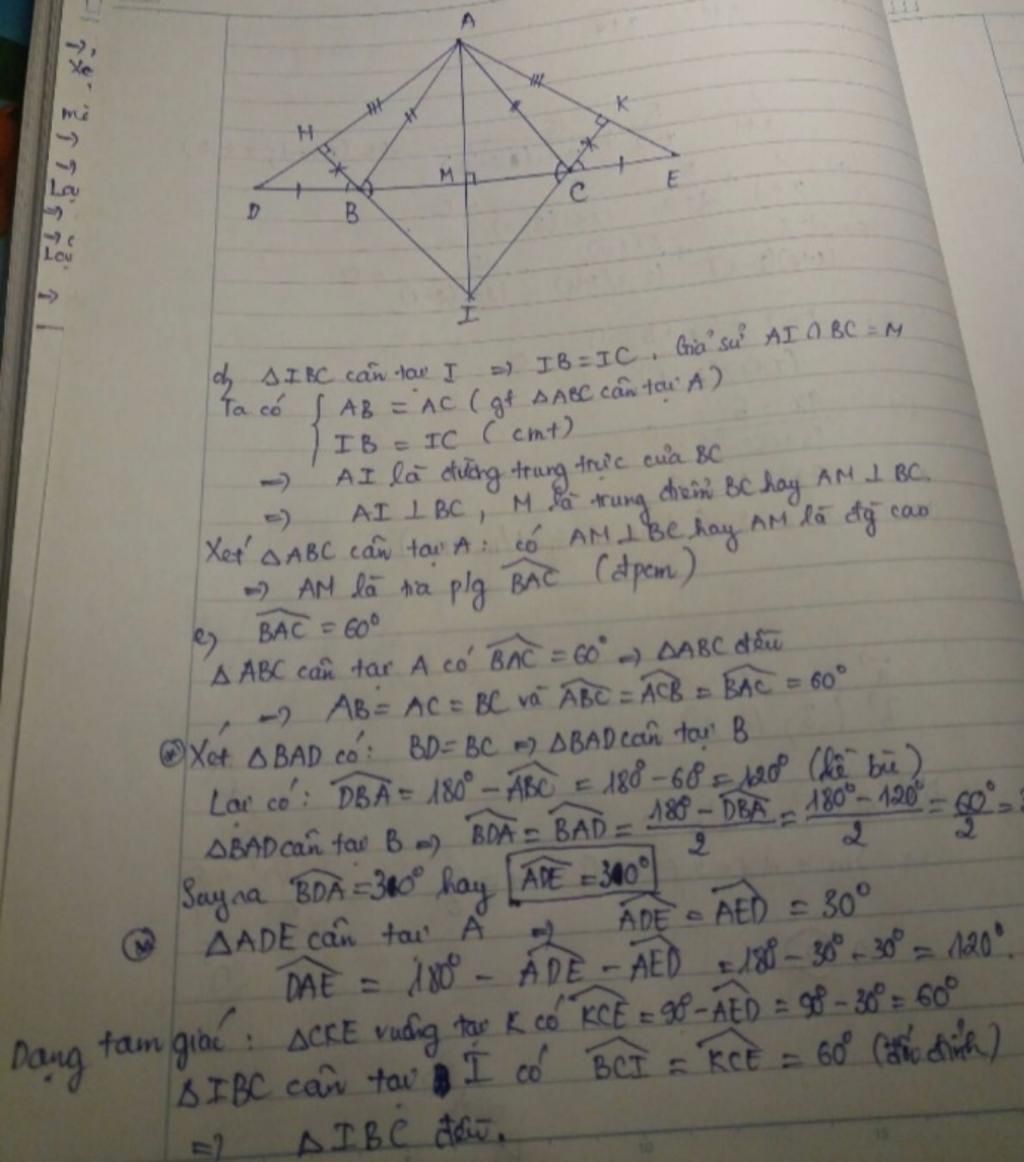 A
H
K
D
B
M
C
E
I
d, ΔIBC cân tại I => IB = IC. Giả sử AI ∩ BC = M
Ta có { AB = AC (gt ΔABC cân tại A)
IB = IC (cmt)
=> AI là đường trung trực của BC
=> AI ⊥ BC, M là trung điểm BC hay AM ⊥ BC.
Xét ΔABC cân tại A: có AM ⊥ BC hay AM là đg cao
=> AM là tia p/g \widehat{BAC} (đpcm)
e, \widehat{BAC} = 60°
ΔABC cân tại A có \widehat{BAC} = 60° => ΔABC đều
=> AB = AC = BC và \widehat{ABC} = \widehat{ACB} = \widehat{BAC} = 60°
* Xét ΔBAD có: BD = BC => ΔBAD cân tại B
Lại có: \widehat{DBA} = 180° - \widehat{ABC} = 180° - 60° = 120° (kề bù)
ΔBAD cân tại B => \widehat{BDA} = \widehat{BAD} = \frac{180° - \widehat{DBA}}{2} = \frac{180° - 120°}{2} = \frac{60°}{2} =
Suy ra \widehat{BDA} = 30° hay \widehat{ADE} = 30°
* ΔADE cân tại A => \widehat{ADE} = \widehat{AED} = 30°
\widehat{DAE} = 180° - \widehat{ADE} - \widehat{AED} = 180° - 30° - 30° = 120°.
Dạng tam giác: ΔCKE vuông tại K có \widehat{KCE} = 90° - \widehat{AED} = 90° - 30° = 60°
ΔIBC cân tại I có \widehat{BCI} = \widehat{KCE} = 60° (đối đỉnh)
=> ΔIBC đều.